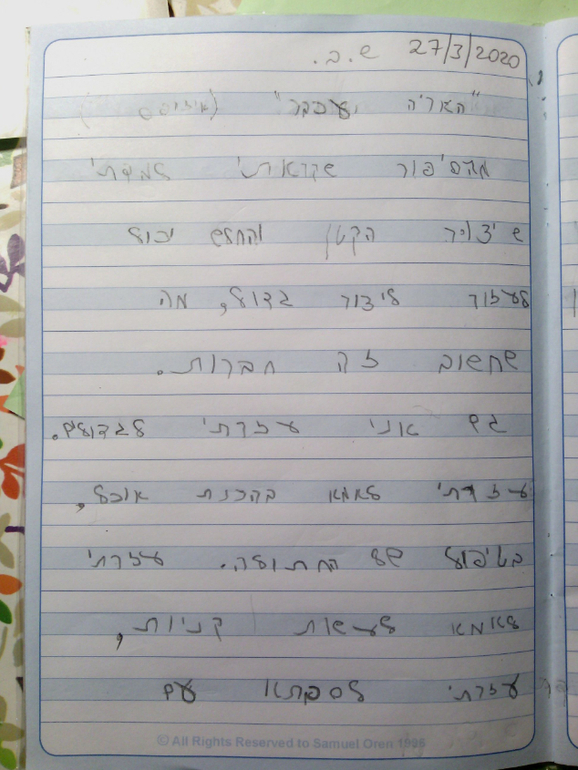 27/3/2020 ש.ב.
"האריה ועכבר"
מהסיפור שקראתי למדתי
ש יצור הקטן והחלש יכול
לעזור ליצור גדול, מה
שחשוב זה חברות.
גם אני עזרתי לגדולים.
עזרתי לאמא בהכנת אוכל,
בטיפול של החתולה. עזרתי
לאמא לעשות קניות,
עזרתי לסבתא עם
© All Rights Reserved to Samuel Oren 1995